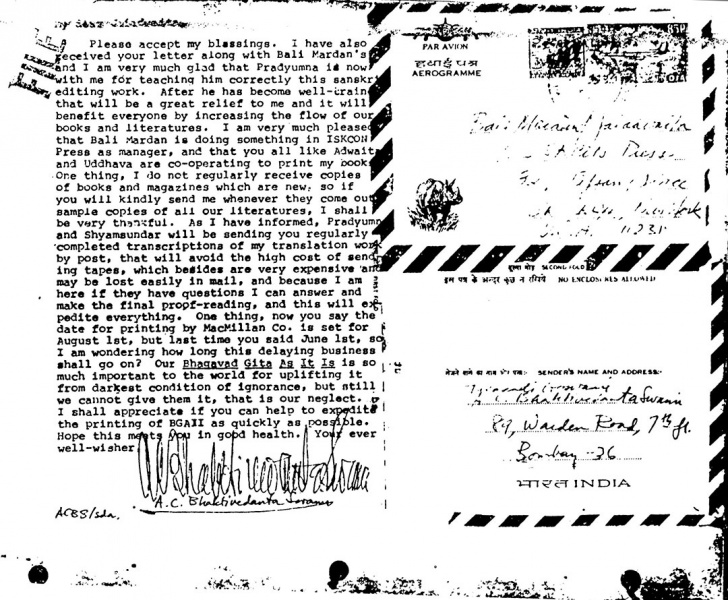 My dear Jaiadvaita
Please accept my blessings. I have also
received your letter along with Bali Mardan's
and I am very much glad that Pradyumna is now
with me for teaching him correctly this sanskri
editing work. After he has become well-traine
that will be a great relief to me and it will
benefit everyone by increasing the flow of our
books and literatures. I am very much pleased
that Bali Mardan is doing something in ISKCON
Press as manager, and that you all like Adwaita
and Uddhava are co-operating to print my books
One thing, I do not regularly receive copies
of books and magazines which are new, so if
you will kindly send me whenever they come out
sample copies of all our literatures, I shall
be very thankful. As I have informed, Pradyumn
and Shyamsundar will be sending you regularly
completed transcriptions of my translation work
by post, that will avoid the high cost of send
ing tapes, which besides are very expensive and
may be lost easily in mail, and because I am
here if they have questions I can answer and
make the final proof-reading, and this will ex
pedite everything. One thing, now you say the
date for printing by MacMillan Co. is set for
August 1st, but last time you said June 1st, so
I am wondering how long this delaying business
shall go on? Our Bhagavad Gita As It Is is so
much important to the world for uplifting it
from darkest condition of ignorance, but still
we cannot give them it, that is our neglect.
I shall appreciate if you can help to expedite
the printing of BGAII as quickly as possible.
Hope this meets you in good health. Your ever
well-wisher,
A.C. Bhaktivedanta Swami
ACBS/sda.
PAR AVION
हवाई पत्र
AEROGRAMME
Press
11231
दूसरा मोड़ SECOND FOLD
इस पत्र के अन्दर कुछ न रखिये NO ENCLOSURES ALLOWED
भेजने वाले का नाम और पता:- SENDER'S NAME AND ADDRESS:-
A C Bhaktivedanta Swami
89, Warden Road, 7th fl.
Bombay-26
भारत INDIA